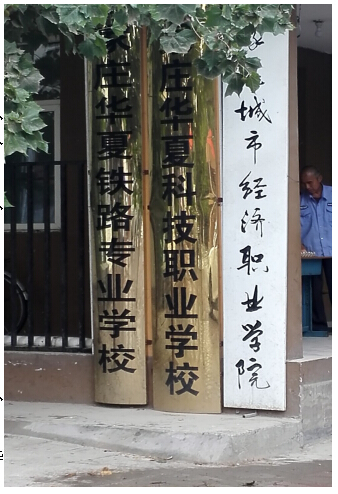 庄华夏铁路专业学校
庄华夏科技职业学校
城市经济职业学院